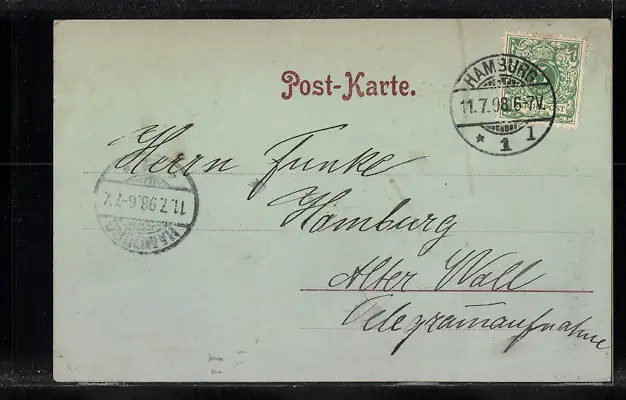 Post-Karte.
HAMBURG
11.7.98.6-7V.
* 1 1
Herrn Funke
Hamburg
Alter Wall
Telegramaufnahme
11.7.98.6-7V.
HAMBURG